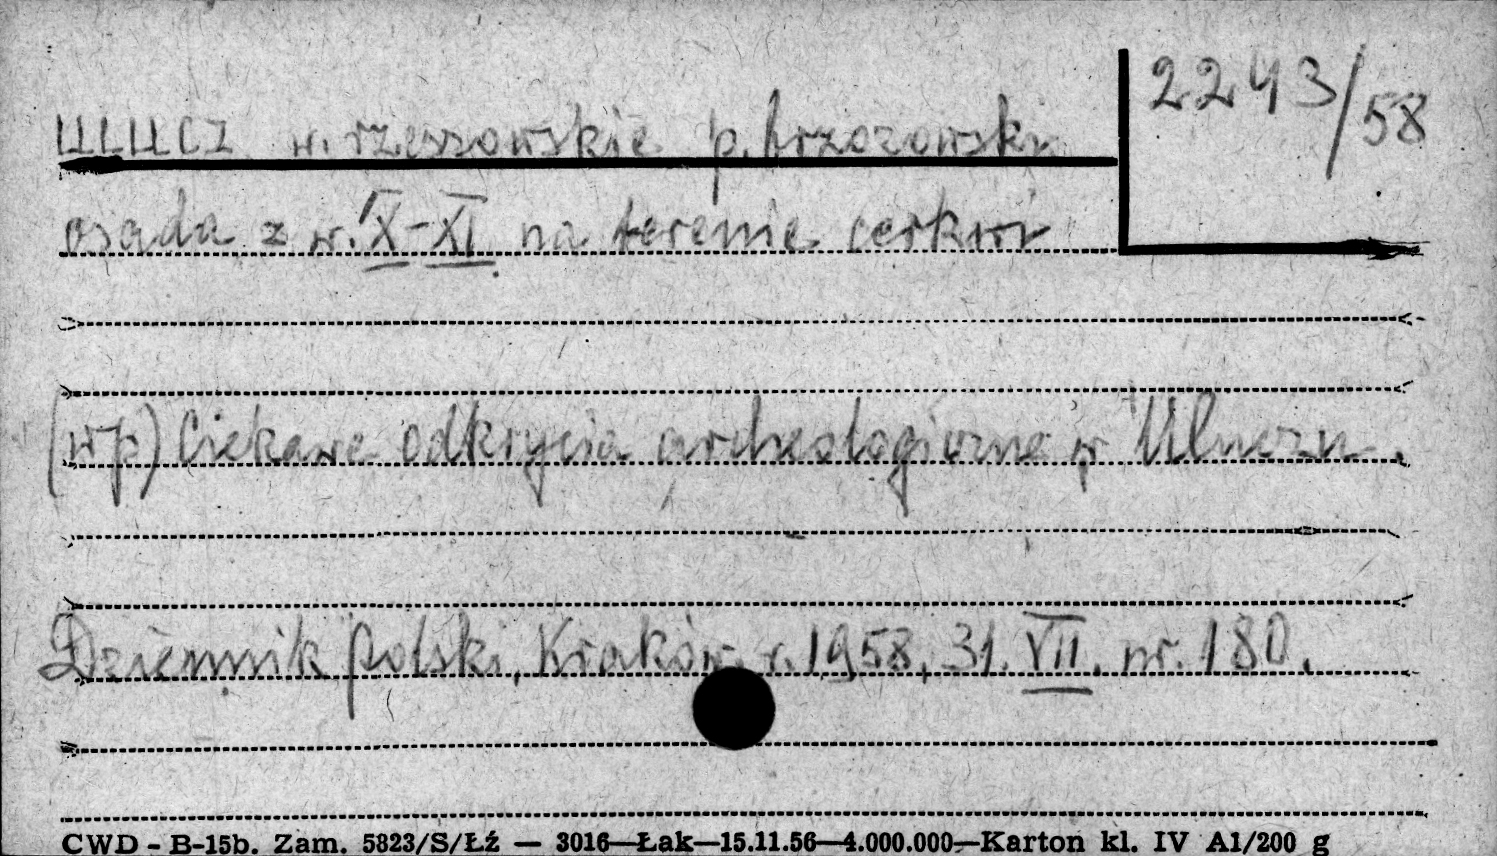 2243/58
ULUCZ w. rzeszowskie p. brzozowski
osada z w. IX-XI na terenie cerkwi
(wp) Ciekawe odkrycia archeologiczne w Uluczu.
Dziennik Polski, Kraków r. 1958, 31. VII. nr. 180.
CWD - B-15b. Zam. 5823/S/Łź — 3016—Łak—15.11.56—4.000.000—Karton kl. IV A1/200 g